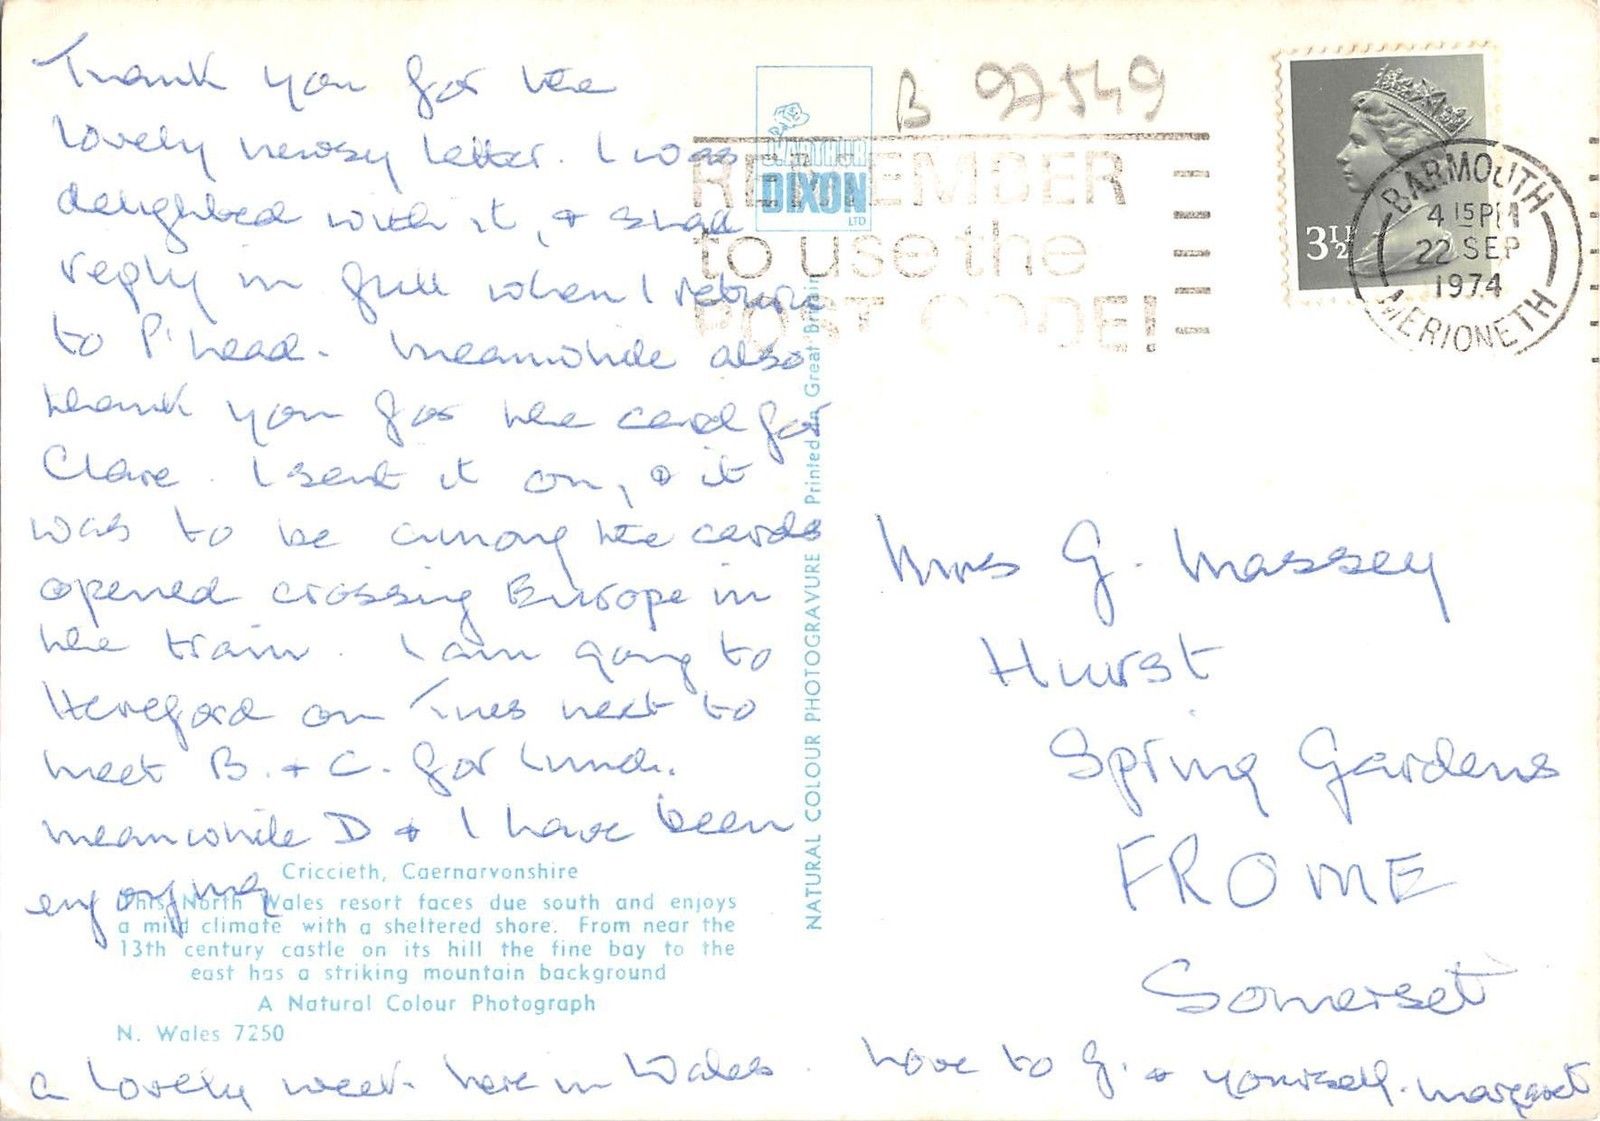 Thank you for the
lovely newsy letter. I was
delighted with it, & shall
reply in full when I return
to P'head. Meanwhile also
thank you for the card for
Clare. I sent it on, & it
was to be among the cards
opened crossing Europe in
the train. I am going to
Hereford on Tues next to
meet B. & C. for lunch.
Meanwhile D & I have been
enjoying
a lovely week here in Wales. Love to G. & yourself. Margaret
Criccieth, Caernarvonshire
This North Wales resort faces due south and enjoys
a mild climate with a sheltered shore. From near the
13th century castle on its hill the fine bay to the
east has a striking mountain background
A Natural Colour Photograph
N. Wales 7250
NATURAL COLOUR PHOTOGRAVURE Printed in Great Britain
J. ARTHUR
DIXON
LTD
B 97549
REMEMBER
to use the
POST CODE!
3½
BARMOUTH
4 15 PM
22 SEP
1974
MERIONETH
Mrs G. Massey
Hurst
Spring Gardens
FROME
Somerset